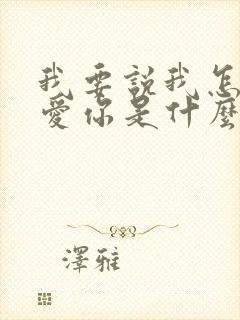 我要說我怎
愛你是什麼
澤雅